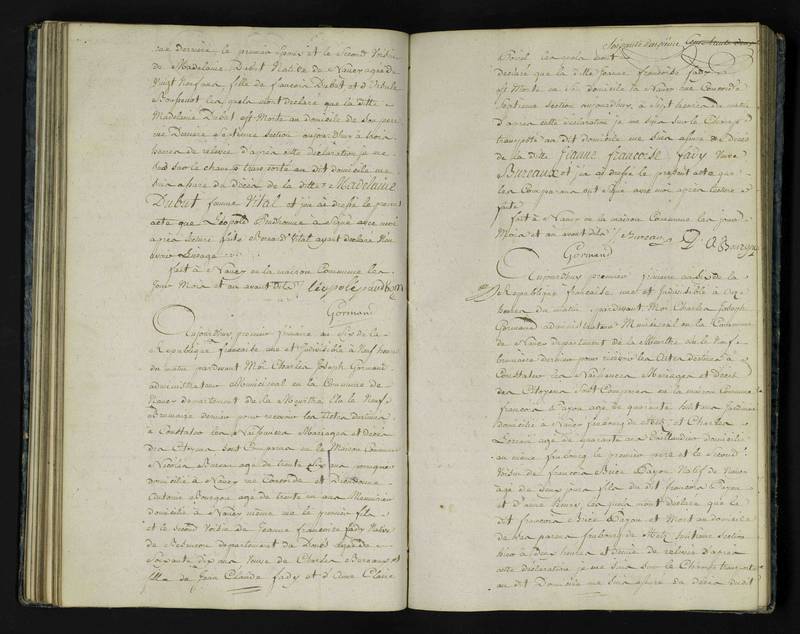 rue derriere le premier Epoux et le Second Voisin
de Madelaine Dubut Native de Nancy agée de
Vingt Neuf ans, fille de francois Dubut et d'Ursule
les quels m'ont declaré que la ditte
Madelaine Dubut est Morte au domicile de Son pere
rue Derriere Septieme Section aujourd'huy à trois
heures de relevée d'après cette déclaration je me
suis sur le champ transporté au dit domicile me
suis assuré du décès de la ditte Madelaine
Dubut femme Vital et j'ai dressé le present
acte que Léopold Prudhomme à Signé avec moi
après lecture faite Vital ayant declaré Non
avoir l'usage
fait à Nancy en la maison Commune les
Jour Mois et an avant dits
Gormand
Aujourdhuy premier frimaire an Six de la
République française une et Indivisible à Neuf heures
du matin pardevant Moi Charles Joseph Gormand
administrateur Municipal en la Commune de
Nancy departement de la Meurthe Elu le Neuf
Brumaire dernier pour recevoir les Actes destinés
à Constater les Naissances Mariages et Décès
des Citoyens Sont Comparus en la Maison Commune
Nicolas Bureau agé de trente Six ans
domicilié à Nancy rue Concorde et Dieudonné
Antoine Bourgon agé de trente un ans Menuisier
domicilié à Nancy même rue le premier fils
et le second Voisin de Jeanne françoise fady Native
de Besancon departement du Doubs agée de
Soixante dix ans Veuve de Charles Bureaux et
fille de Jean Claude fady et d'Anne Claire
Soixante douzieme
les quels m'ont
declaré que la ditte Jeanne francoise fady
est Morte en Son domicile à Nancy rue Concorde
Septieme section aujourdhuy, à Sept heures du matin
d'après cette declaration je me suis sur le Champ
transporté au dit domicile me suis assuré du décès
de la ditte Jeanne francoise fady Veuve
Bureaux et j'ai dressé le present acte que
les Comparans ont signé avec moi après lecture
faite
fait à Nancy en la maison Commune les jour
Mois et an avant dits Bureau
Gormand
Aujourdhuy premier frimaire an Six de la
République française une et Indivisible à
heures du matin pardevant Moi Charles Joseph
Gormand administrateur Municipal en la Commune
de Nancy departement de la Meurthe elu le Neuf
brumaire dernier pour recevoir les Actes destinés à
Constater les Naissances Mariages et Décès
des Citoyens Sont Comparus en la maison Commune
francois Payon agé de quarante huit ans Jardinier
domicilié à Nancy faubourg de Metz et Charles
agé de quarante ans domicilié
au même faubourg le premier pere et le second
Voisin de francois Payon Natif de Nancy
agé de deux jours fils du dit francois Payon
et d'Anne les quels m'ont declaré que le
dit francois Payon est Mort au domicile
de ses parens faubourg de Metz huitieme Section
hier à Dix heures et Demie de relevée d'après
cette declaration je me suis sur le Champ transporté
au dit Domicile me suis assuré du décès dudit